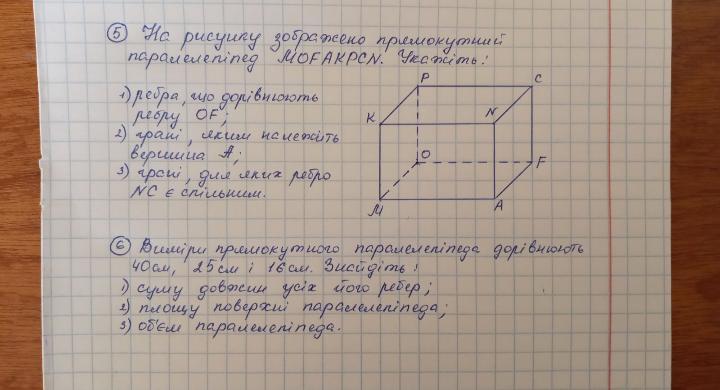 5 На рисунку зображено прямокутний
паралелепіпед MOFAKPCN. Укажіть:
1) ребра, що дорівнюють
ребру OF;
2) грані, яким належить
вершина A;
3) грані, для яких ребро
NC є спільним.
P
C
K
N
O
F
M
A
6 Виміри прямокутного паралелепіпеда дорівнюють
40см, 25см і 16см. Знайдіть:
1) суму довжин усіх його ребер;
2) площу поверхні паралелепіпеда;
3) об'єм паралелепіпеда.